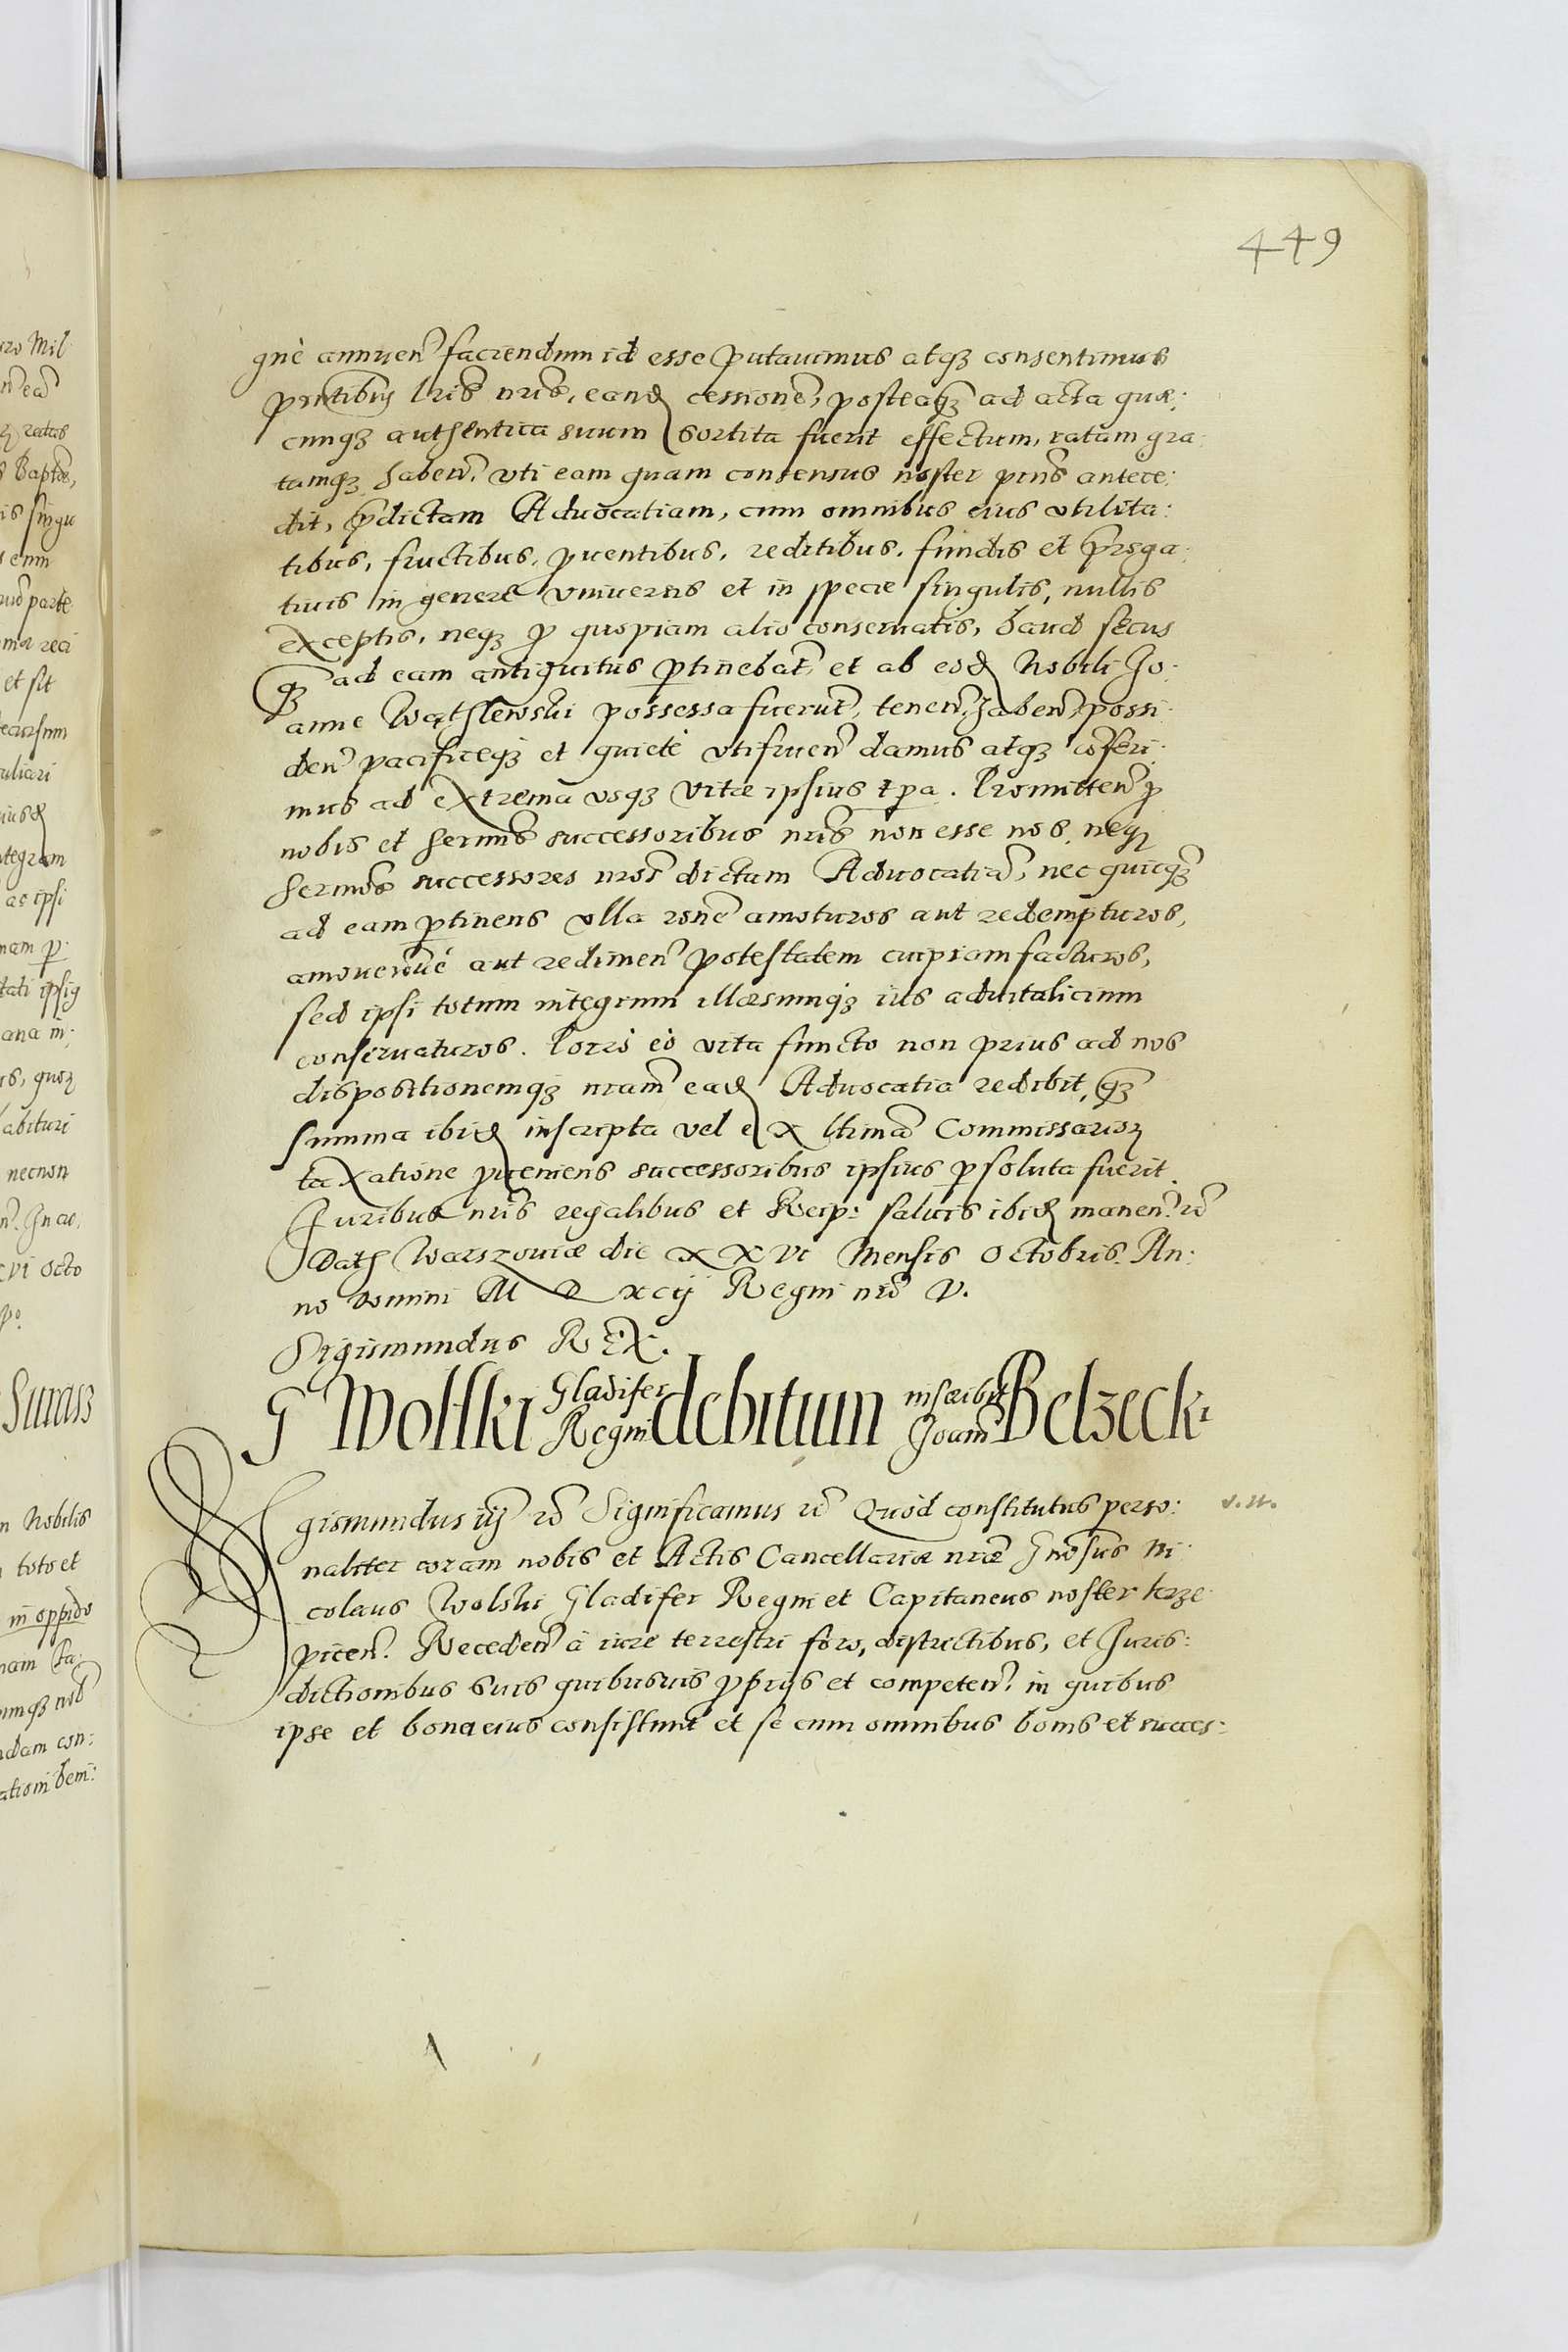 449
gnè annuen̄ faciendum id esse putauimus atq₃ consentimus
pn̄tibus l̄ris nr̄is, eandē cessionē, posteaq̄₃ ad acta quæ:
cunq₃ authentica suum sortita fuerit effectum, ratam gra:
tamq₃ haben̄. vti eam quam consensus noster prn̄s antece:
dit, p̄dictam Aduocatiam, cum omnibus eius vtilita:
tibus, fructibus, ꝓuentibus, reditibus, fundis et p̄roga:
tiuis in genere vniuersis et in specie singulis, nullis
exceptis, neq₃ ꝑ quopiam alio conseruatis, haud secus
q̄₃ ad eam antiquitus ꝑtinebat, et ab eodē Nobili Jo:
anne Wąthlewski possessa fuerūt, tenen̄, haben̄, possi:
den̄ pacificeq₃ et quietè vtifruen̄ damus atq₃ cōferi:
mus ad extrema vsq₃ vitæ ipsius tp̄a. Promitten̄ ꝓ
nobis et Serm̄is successoribus nr̄is non esse nos, neq₃
Serm̄os successores nr̄os dictam Aduocatiā, nec quicq̄₃
ad eam ꝑtinens vlla rōne amoturos aut redempturos,
amouendiuè aut redimen̄ potestatem cuipiam facturos,
sed ipsi totum integrum illæsumq₃ ius aduitalicium
conseruaturos. Porrò eo vita functo non prius ad nos
dispositionemq₃ nr̄am eadē Aduocatia redibit, q̄₃
summa ibidē inscripta vel ex l̄tima Commissarioꝝ
taxatione ꝓueniens successoribus ipsius ꝑsoluta fuerit.
Juribus nr̄is regalibus et Reip: saluis ibidē manen̄. rc̄
Dat. Warszouiæ die XXVI Mensis Octobris. An:
no Domini M D xcij Regni nr̄i V.
Sigismundus REX.
G Wolski Gladifer Regni debitum inscribit Joanni Belzecki
Sigismundus iij rc̄ Significamus rc̄ Quod constitutus perso:
v. n.
naliter coram nobis et Actis Cancellariæ nr̄æ Gn̄osus Ni:
colaus Wolski Gladifer Regni et Capitaneus noster krze:
picen̄. Receden̄ à iure terrestri foro, districtibus, et Juris:
dictionibus suis quibusuis ꝓprijs et competen̄. in quibus
ipse et bona eius consistunt et se cum omnibus bonis et succes: